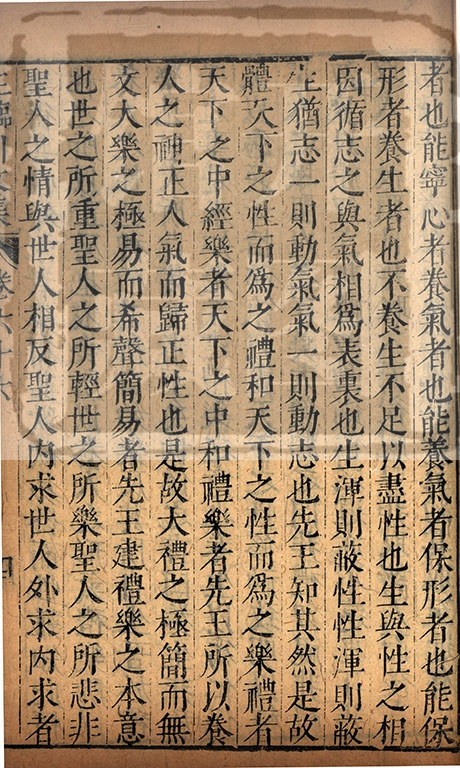 者也能寧心者養氣者也能養氣者保形者也能保
形者養生者也不養生不足以盡性也生與性之相
因循志之與氣相為表裏也生渾則蔽性性渾則蔽
生猶志一則動氣氣一則動志也先王知其然是故
體天下之性而為之禮和天下之性而為之樂禮者
天下之中經樂者天下之中和禮樂者先王所以養
人之神正人氣而歸正性也是故大禮之極簡而無
文大樂之極易而希聲簡易者先王建禮樂之本意
也世之所重聖人之所輕世之所樂聖人之所悲非
聖人之情與世人相反聖人內求世人外求內求者
王臨川文集 卷六十六